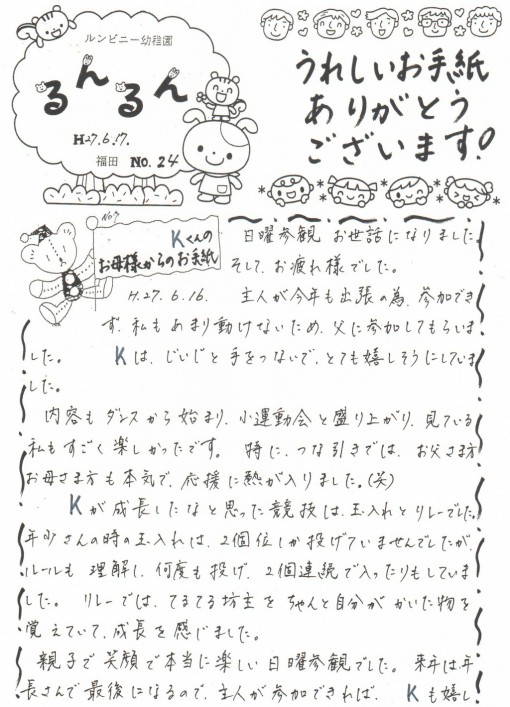 ルンビニー幼稚園
るんるん
H27.6.17.
福田 No.24
うれしいお手紙
ありがとう
ございます!
No7
Kくんの
お母様からのお手紙
日曜参観 お世話になりました
そして、お疲れ様でした。
H.27.6.16. 主人が今年も出張の為、参加でき
ず、私もあまり動けないため、父に参加してもらいま
した。 Kは、じいじと手をつないで、とても嬉しそうにしていま
した。
内容もダンスから始まり、小運動会と盛り上がり、見ている
私もすごく楽しかったです。 特に、つな引きでは、お父さま方
お母さま方も本気で、応援に熱が入りました。(笑)
Kが成長したなと思った競技は、玉入れとリレーでした。
年少さんの時の玉入れは、2個位しか投げていませんでしたが、
ルールも理解し、何度も投げ、2個連続で入ったりもしていま
した。 リレーでは、てるてる坊主をちゃんと自分がかいた物を
覚えていて、成長を感じました。
親子で笑顔で本当に楽しい日曜参観でした。 来年は年
長さんで最後になるので、主人が参加できれば、 Kも嬉し